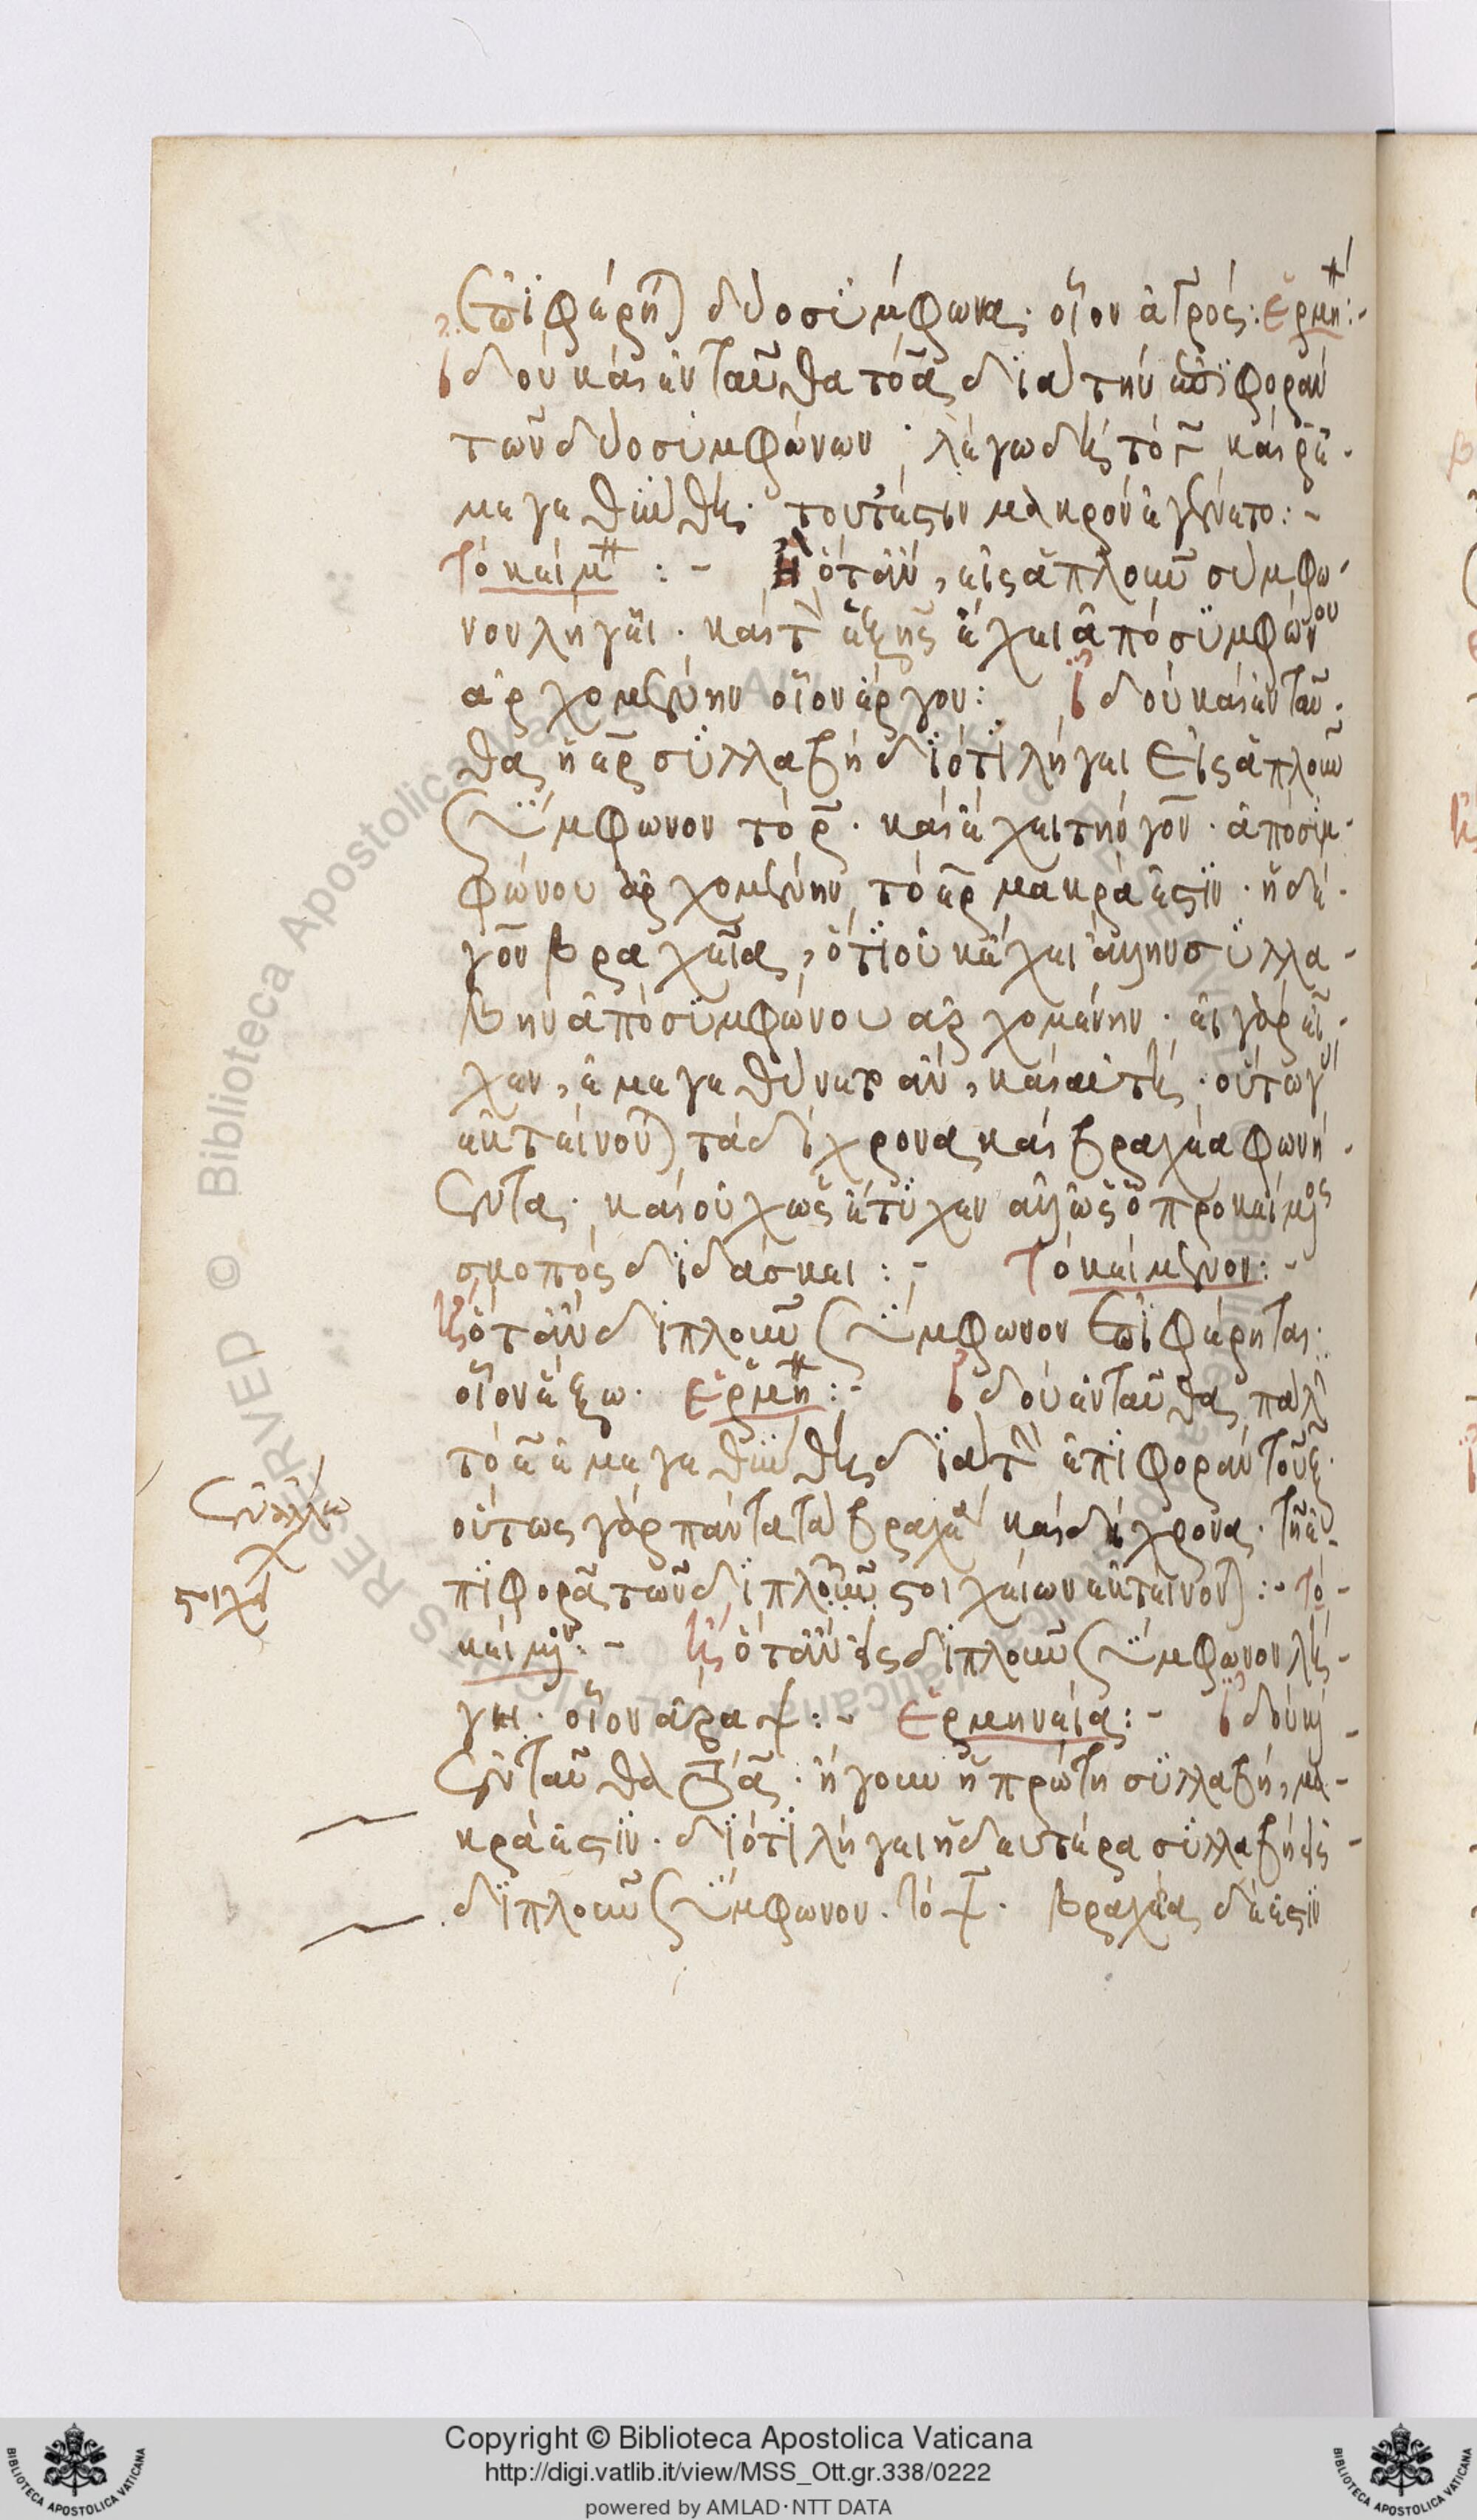 ἐπιφέρηται δύο σύμφωνα· οἷον ἀγρός: Ἑρμη:-
Ἰδοὺ καὶ ἐνταῦθα τὸ α διὰ τὴν ἐπιφορὰν
τῶν δύο συμφώνων· λέγω δὲ τὸ γ καὶ ρ ἐ-
μεγεθύνθη· τουτέστιν μακρὸν ἐγένετο:-
Τὸ κείμ :- Ἢ ὅταν, εἰς ἁπλοῦν σύμφω-
νον λήγει· καὶ τὴν ἑξῆς ἔχει ἀπὸ συμφώνου
ἀρχομένην οἷον ἔργον: Ἰδοὺ καὶ ἐνταῦ-
θα, ἡ ερ συλλαβὴ διότι λήγει εἰς ἁπλοῦν
σύμφωνον τὸ ρ· καὶ ἔχει τὴν γον· ἀπὸ συμ-
φώνου ἀρχομένην, τὸ ερ μακρά ἐστιν· ἡ δέ-
γον βραχεῖα, ὅτι οὐκ ἔχει ἄλλην συλλα-
βὴν ἀπὸ συμφώνου ἀρχομένην· εἰ γὰρ εἶ-
χεν, ἐμεγεθύνετο ἂν, καὶ αὐτή· οὕτω γὰρ
ἐκτείνονται τὰ δίχρονα καὶ βραχέα φωνή-
εντα· καὶ οὐχ ὡς ἔτυχεν ἀλλ' ὡς ὁ προκείμενος
σκοπὸς διδάσκει:- Τὸ κείμενον:-
Ἢ ὅταν διπλοῦν σύμφωνον ἐπιφέρηται·
οἷον ἔξω· Ἑρμη:- Ἰδοὺ ἐνταῦθα, πάλιν
τὸ ε ἐμεγεθύνθη διὰ τὴν ἐπιφορὰν τοῦ ξ·
οὕτως γὰρ πάντα τὰ βραχέα καὶ δίχρονα· τῇ ἐ-
πιφορᾷ τῶν διπλῶν στοιχείων ἐκτείνονται:- Τὸ-
κείμενον:- Ἢ ὅταν εἰς διπλοῦν σύμφωνον λή-
γει· οἷον ἄραψ:- Ἑρμηνεία:- Ἰδοὺ καὶ
ἐνταῦθα τὸ α· ἤγουν ἡ πρώτη συλλαβὴ, μα-
κρά ἐστιν· διότι λήγει ἡ δευτέρα συλλαβὴ εἰς
διπλοῦν σύμφωνον· τὸ ψ· βραχεῖα, δέ ἐστιν